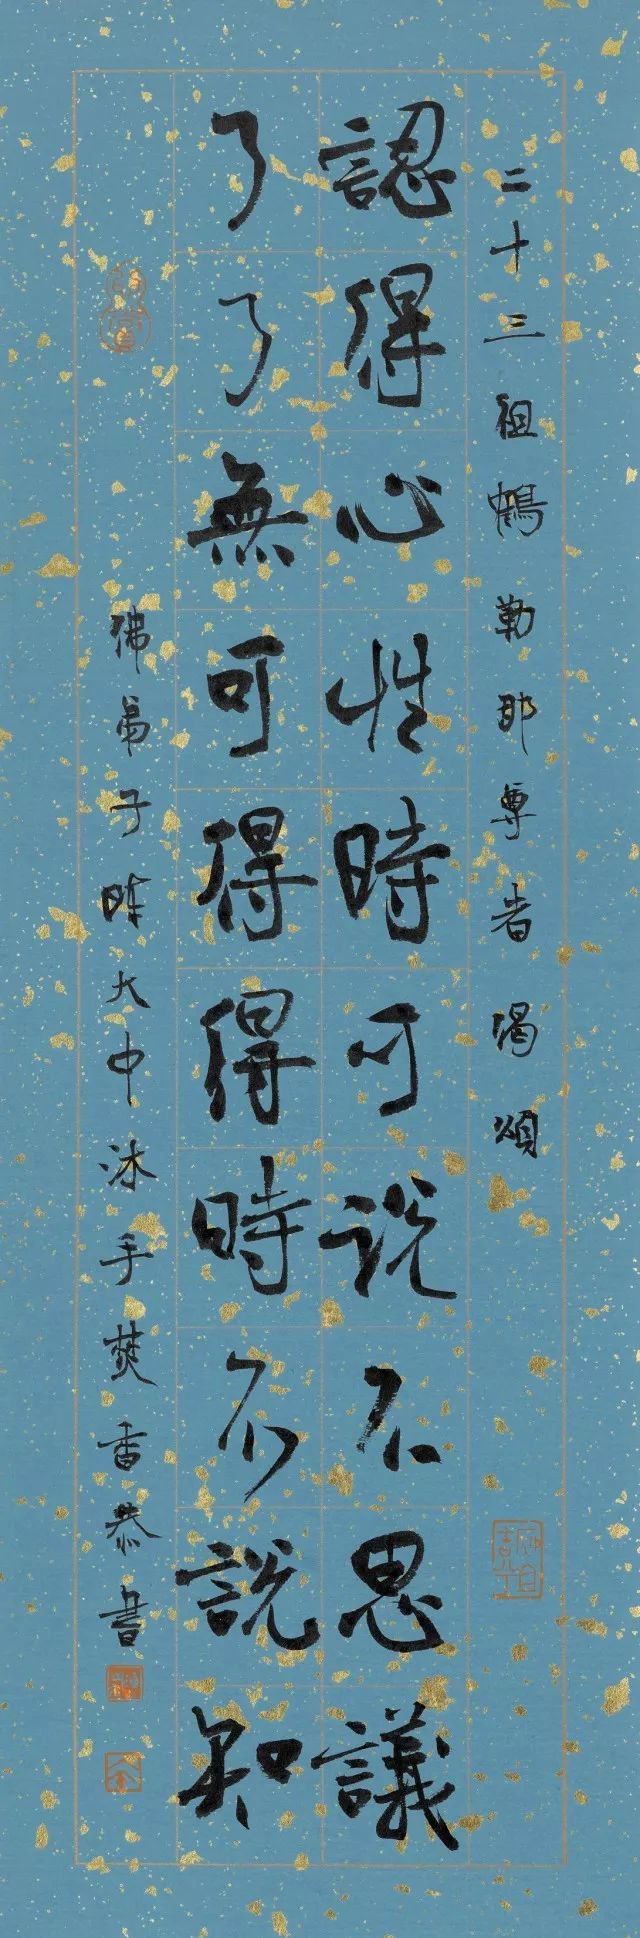 二十三祖鶴勒那尊者偈頌
認得心性時可說不思議
了了無可得得時不說知
佛弟子陈大中沐手焚香恭書